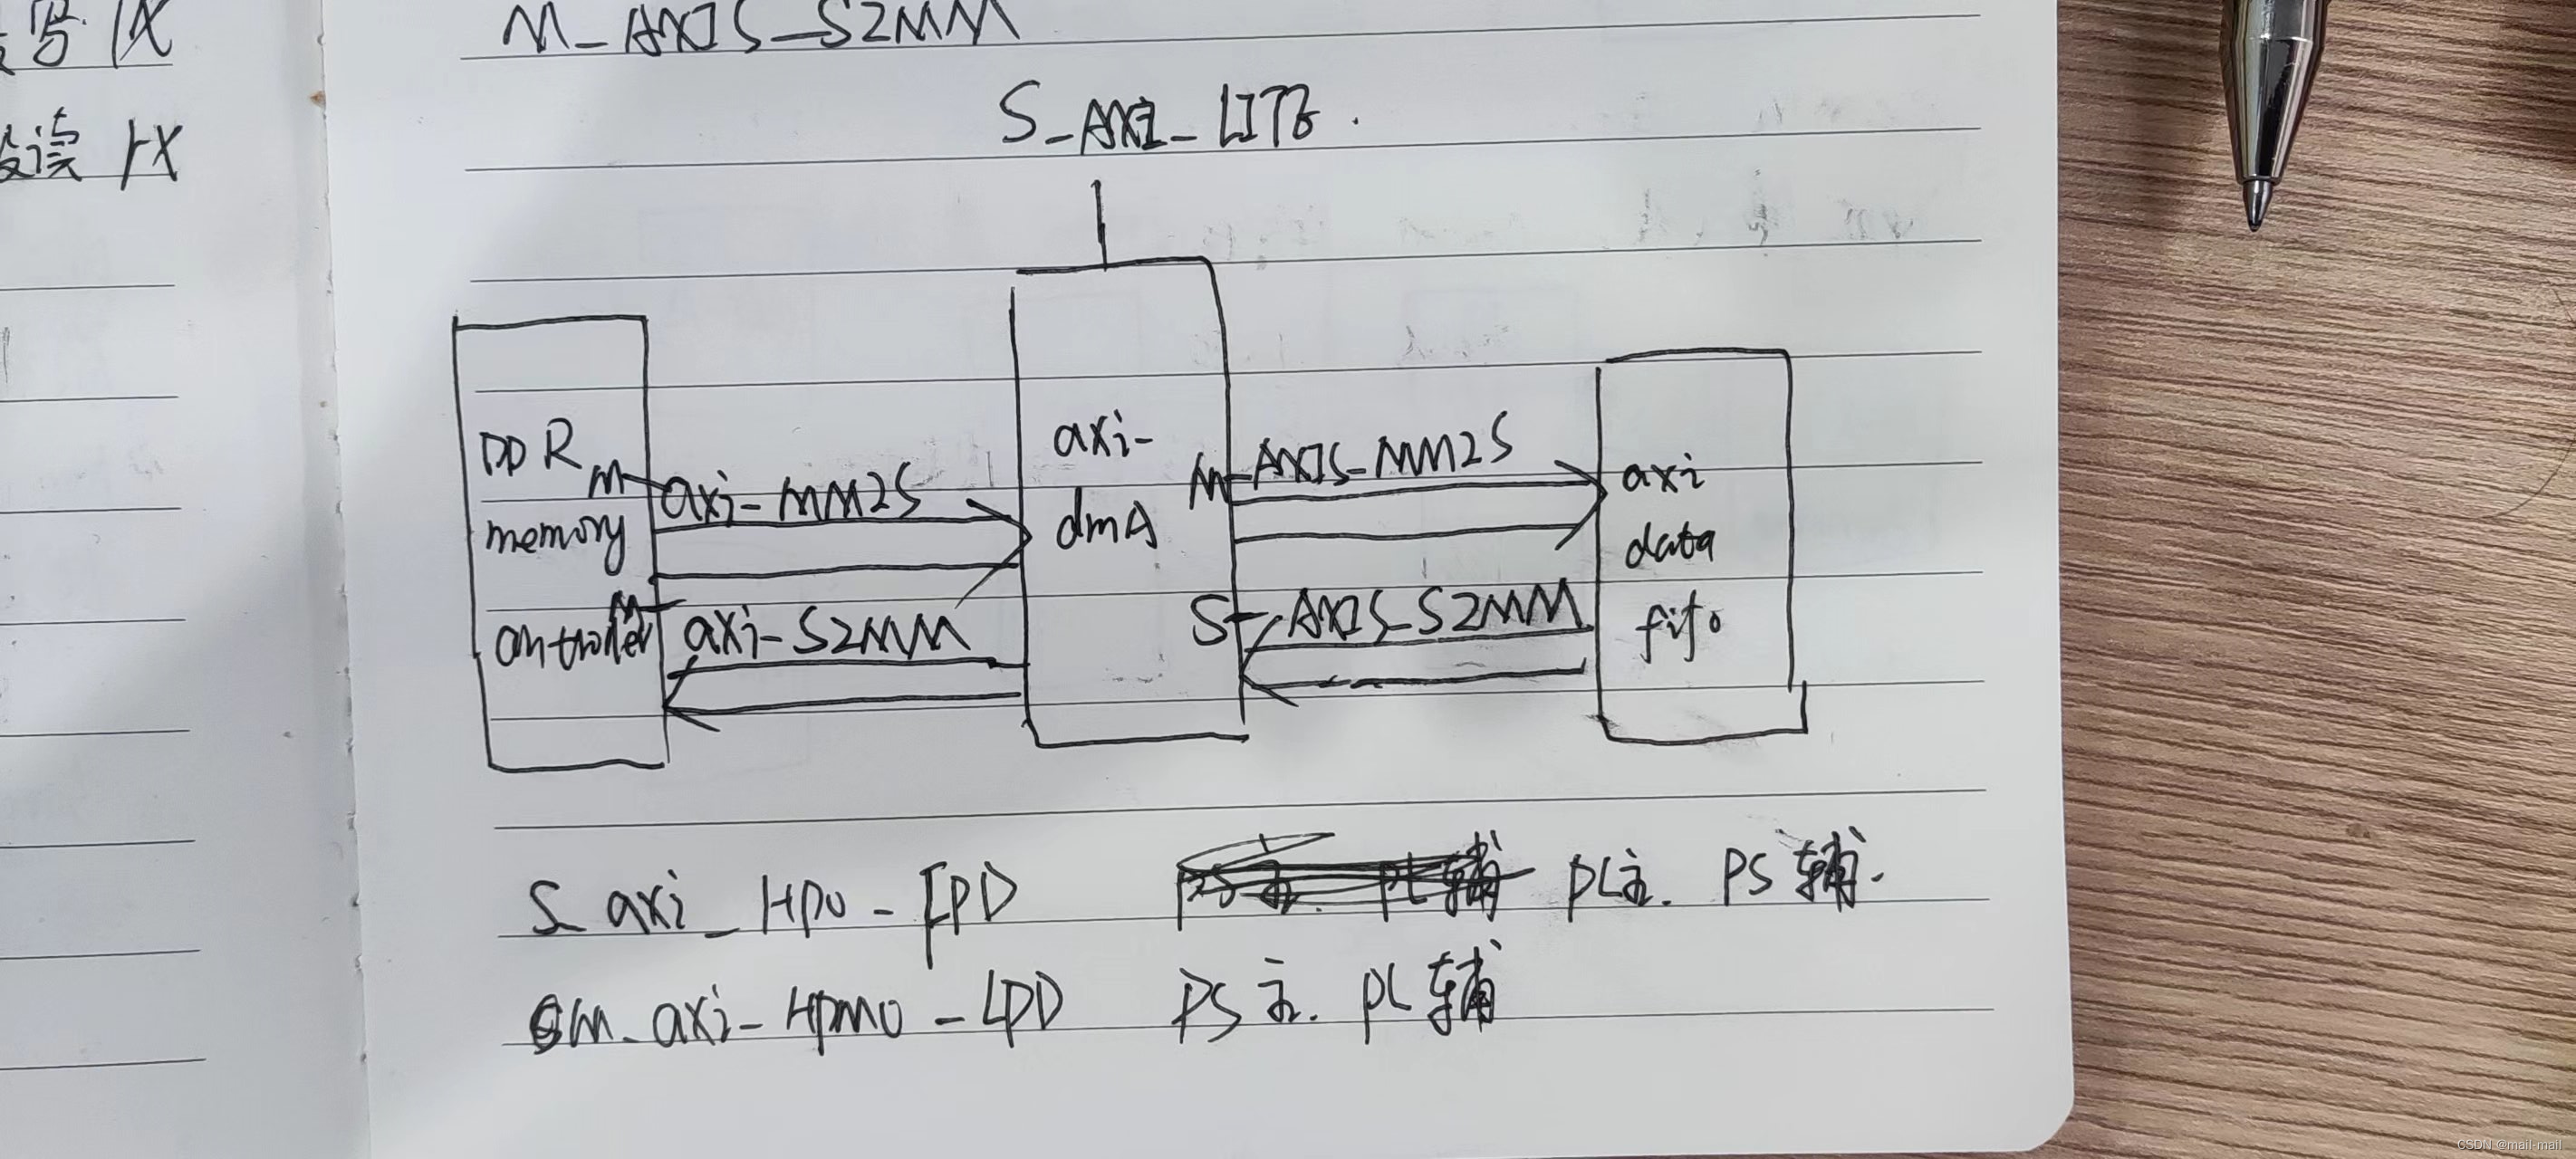 写 TX
读 rX
M_AXIS_S2MM
S_AXI_LITE.
DDR
memory
controller
M_axi_MM2S
M_axi_S2MM
axi_
dmA
M_AXIS_MM2S
S_AXIS_S2MM
axi
data
fifo
S_axi_HP0_FPD PL主. PS辅.
M_axi_HPM0_LPD PS主. PL辅
CSDN @mail-mail